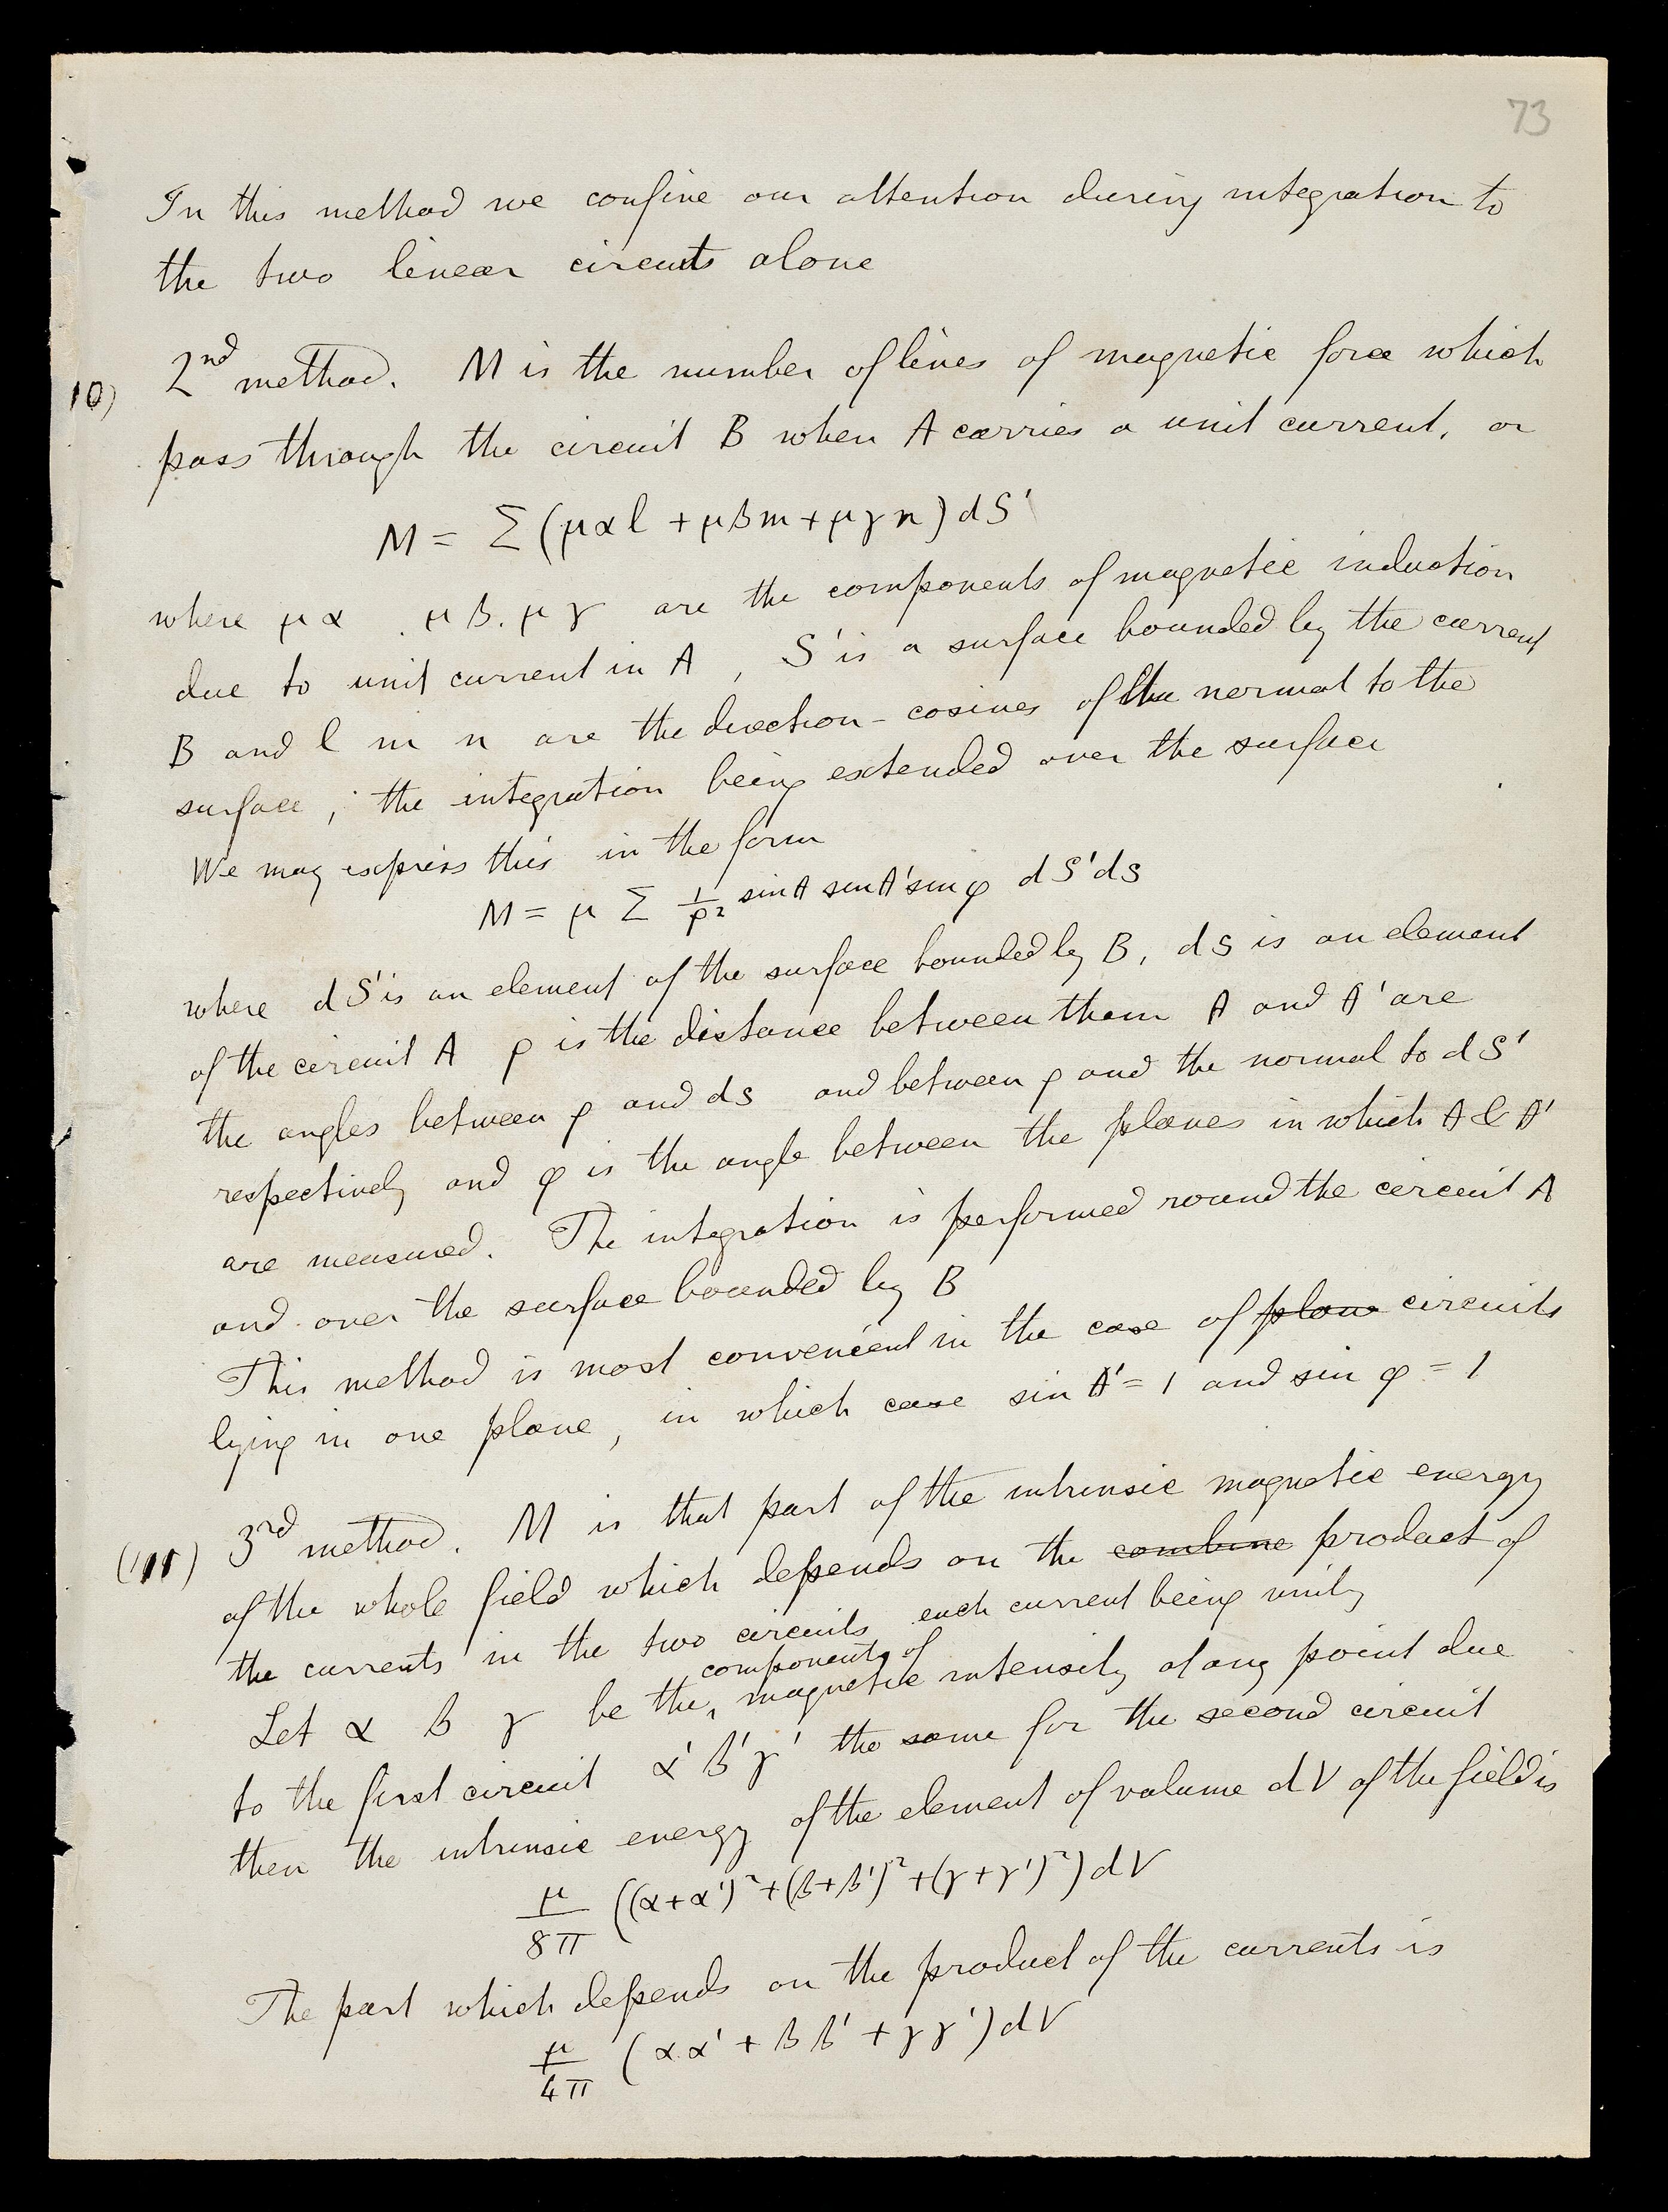 73
In this method we confine our attention during integration to
the two linear circuits alone
10) 2nd method. M is the number of lines of magnetic force which
pass through the circuit B when A carries a unit current, or
M = Σ (μαl + μβm + μγn) dS'
where μα μβ. μγ are the components of magnetic induction
due to unit current in A, S' is a surface bounded by the current
B and l m n are the direction-cosines of the normal to the
surface, the integration being extended over the surface
We may express this in the form
M = μ Σ 1/ρ² sin θ sin θ' sin φ dS'ds
where dS' is an element of the surface bounded by B, ds is an element
of the circuit A ρ is the distance between them θ and θ' are
the angles between ρ and ds and between ρ and the normal to dS'
respectively and φ is the angle between the planes in which θ & θ'
are measured. The integration is performed round the circuit A
and over the surface bounded by B
This method is most convenient in the case of plane circuits
lying in one plane, in which case sin θ' = 1 and sin φ = 1
(11) 3rd method. M is that part of the intrinsic magnetic energy
of the whole field which depends on the combine product of
the currents in the two circuits each current being unity
components of
Let α β γ be the magnetic intensity at any point due
to the first circuit α' β' γ' the same for the second circuit
then the intrinsic energy of the element of volume dV of the field is
μ/8π ((α+α')² + (β+β')² + (γ+γ')²) dV
The part which depends on the product of the currents is
μ/4π (αα' + ββ' + γγ') dV